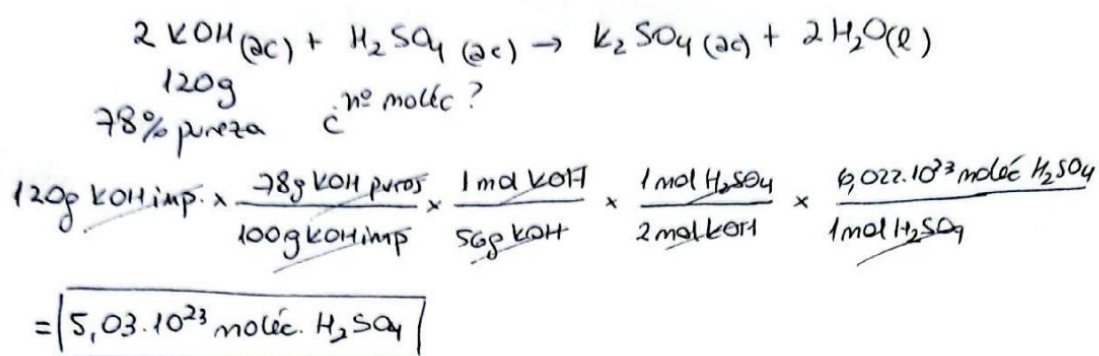 2 KOH (ac) + H₂SO₄ (ac) → K₂SO₄ (ac) + 2 H₂O (l)
120g
78% pureza ¿nº moléc?
120g KOH imp. × 78g KOH puros / 100g KOH imp × 1 mol KOH / 56g KOH × 1 mol H₂SO₄ / 2 mol KOH × 6,022·10²³ moléc H₂SO₄ / 1 mol H₂SO₄
= 5,03·10²³ moléc. H₂SO₄